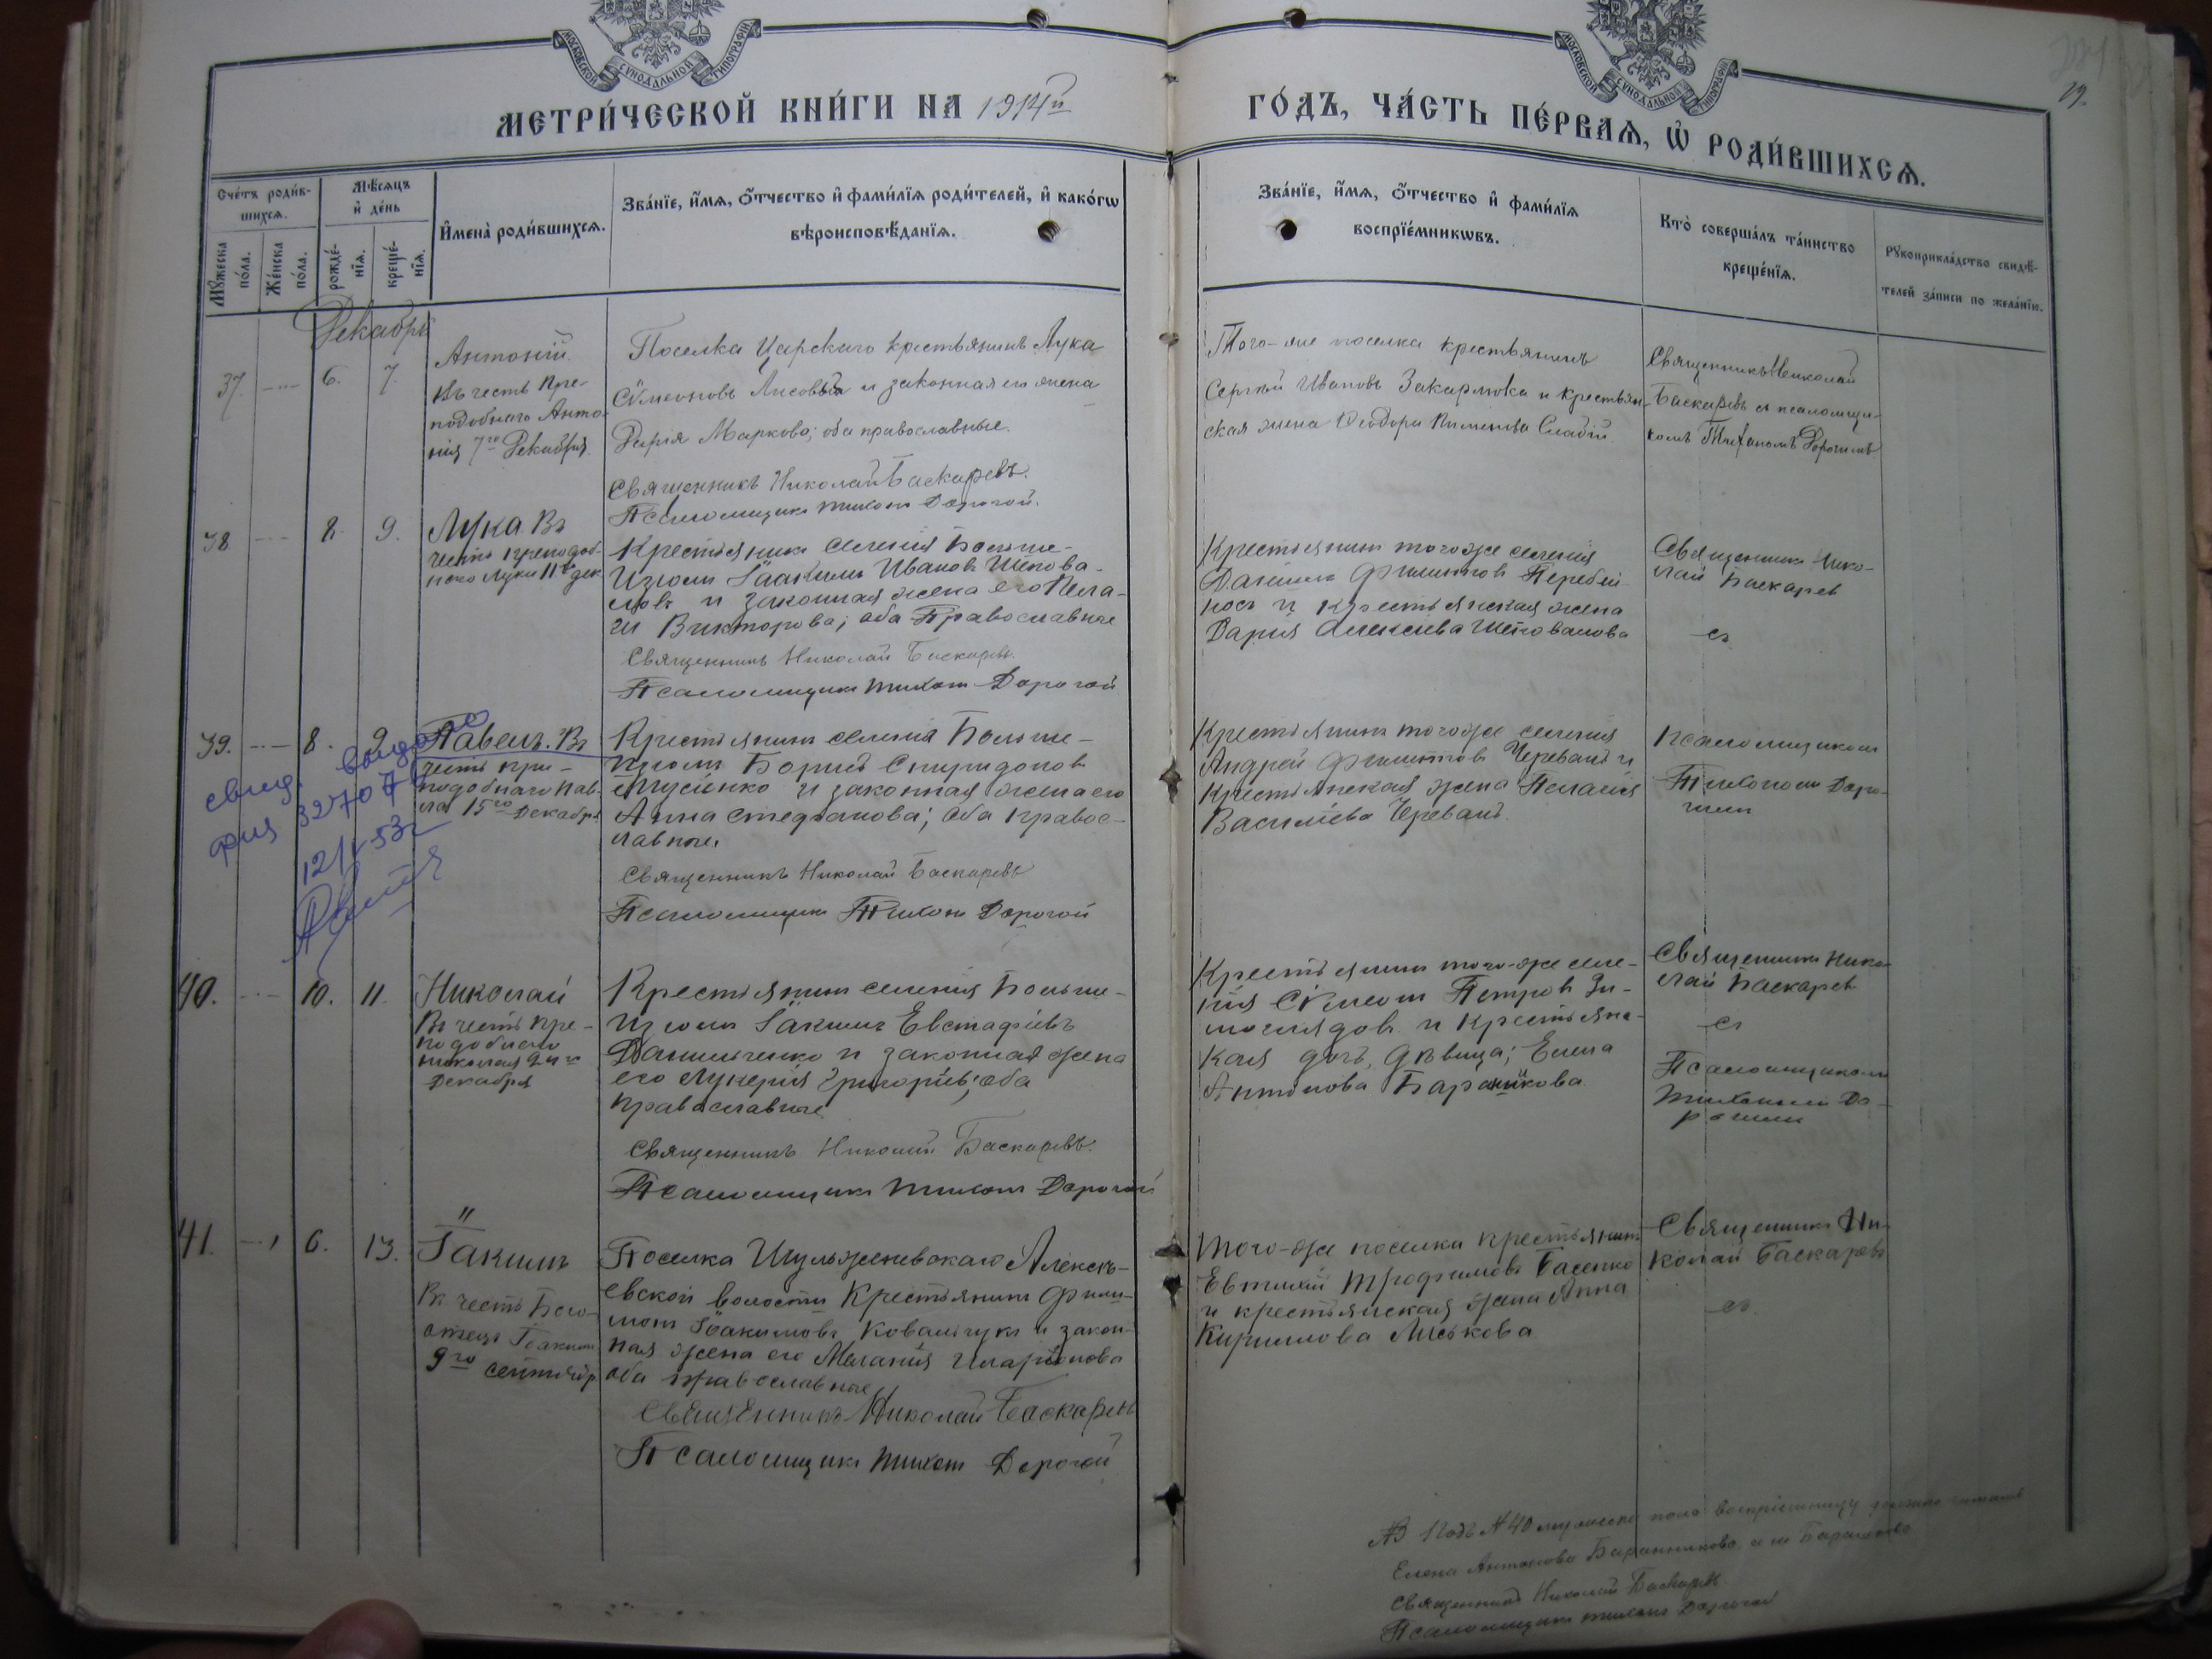 МОСКОВСКОЙ СѴНОДАЛЬНОЙ ТИПОГРАФІИ
МОСКОВСКОЙ СѴНОДАЛЬНОЙ ТИПОГРАФІИ
29.
МЕТРИ́ЧЕСКОЙ КНИ́ГИ НА 1914й
ГО́ДЪ, ЧА́СТЬ ПЕ́РВАѦ, Ѡ҆ РОДИ́ВШИХСѦ.
Сче́тъ роди́в-
шихсѧ.
Мꙋ́жеска по́ла.
Же́нска по́ла.
Мѣ́сѧцъ
и҆ де́нь
рожде́-
нїѧ.
креще́-
нїѧ.
И҆мена̀ роди́вшихсѧ.
Зва́нїе, и҆́мѧ, ѻ҆́тчество и҆ фами́лїѧ роди́телей, и҆ како́гѡ
вѣроисповѣ́данїѧ.
Зва́нїе, и҆́мѧ, ѻ҆́тчество и҆ фами́лїѧ
воспрїе́мникѡвъ.
Кто̀ соверша́лъ та́инство
креще́нїѧ.
Рꙋкоприкла́дство свидѣ́-
телей за́писи по жела́нїю.
Декабрь
37. 6. 7.
Антоній
Въ честь Пре-
подобнаго Анто-
нія 7го Декабря.
Поселка Царскаго крестьянинъ Лука
Сѵмеоновъ Лисовый и законная его жена
Дарія Маркова; оба православные.
Священникъ Николай Баскаревъ.
Псаломщикъ Тихонъ Дорогой.
Того-же поселка крестьянинъ
Сергѣй Ивановъ Закарлюка и крестьян-
ская жена Ѳеодора
Священникъ Николай
Баскаревъ съ псаломщи-
комъ Тихономъ Дорогимъ
38 8. 9.
Лука Въ
честь преподоб-
наго Луки 11го дек
Крестьянинъ селенія Больше-
Изюмъ Іоакимъ Ивановъ Шепова-
ловъ и законная жена его Пела-
гія Викторова; оба Православные
Священникъ Николай Баскаревъ.
Псаломщикъ Тихонъ Дорогой
Крестьянинъ тогоже селенія
Даніилъ Филиповъ Перебей-
носъ и крестьянская жена
Дарія Алексіева Шеповалова
Священникъ Нико-
лай Баскарев
съ
39. 8. 9
Павелъ. Въ
честь пре-
подобнаго Пав-
ла 15го Декабря
свид. выдано
327076
12/V-53г
Крестьянинъ селенія Больше-
Изюмъ Борисъ Спиридонов
и законная жена его
Анна Стефанова; оба правос-
лавные.
Священникъ Николай Баскаревъ
Псаломщикъ Тихонъ Дорогой
Крестьянинъ тогоже селенія
Андрей Филиповъ Черевань и
Крестьянская жена Пелагія
Василіева Черевань.
Псаломщикомъ
Тихономъ Доро-
гимъ
40. 10. 11.
Николай
Въ честь пре-
подобнаго
Николая 24го
Декабря
Крестьянинъ селенія Больше-
Изюмъ Іакимъ Евстафіевъ
Данильченко и законная жена
его Лукерія Григоріев; оба
православные
Священникъ Николай Баскаревъ.
Псаломщикъ Тихонъ Дорогой
Крестьянинъ того-же селе-
нія Сѵмеонъ Петров Зи-
моглядовъ и крестьянс-
кая дочь, дѣвица; Елена
Антонова Баранікова
Священникъ Нико-
лай Баскарев
съ
Псаломщикомъ
Тихономъ До-
рогимъ
41. 6. 13.
Іакимъ
Въ честь Бого-
отецъ Іоакима
9го сентября
Поселка Алексѣ-
евской волости Крестьянинъ Фили-
монъ Іоакимовъ Ковальчукъ и закон-
ная жена его Меланія Иларіонова
оба православные
Священникъ Николай Баскаревъ
Псаломщикъ Тихонъ Дорогой
Того-же поселка крестьянинъ
Евтихій Трофимовъ Басенко
и крестьянская жена Анна
Кирилова Лиськова
Священникъ Ни-
колай Баскаревъ
съ
№ 40 мужеска пола воспріемницу должно читать
Елена Антонова Баранникова, а не
Священникъ Николай Баскаревъ
Псаломщикъ Тихонъ Дорогой